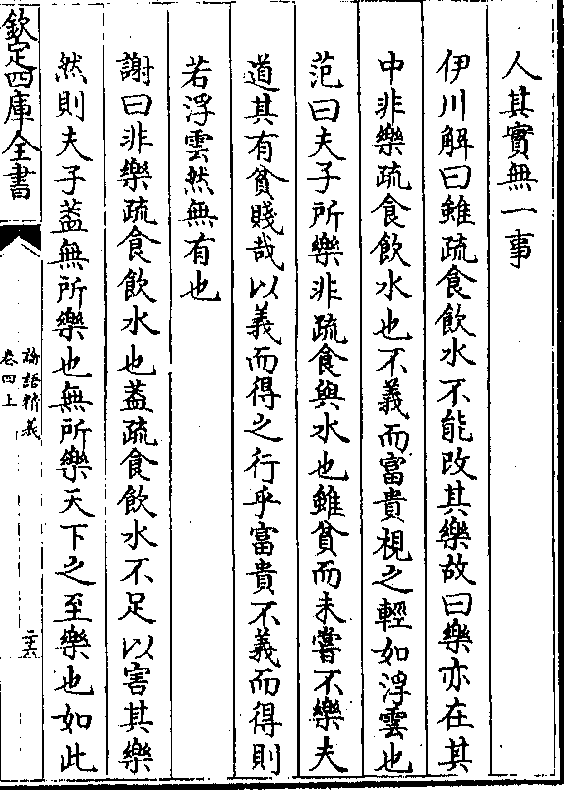 人其實無一事
伊川解曰雖疏食飲水不能改其樂故曰樂亦在其
中非樂疏食飲水也不義而富貴視之輕如浮雲也
范曰夫子所樂非疏食與水也雖貧而未嘗不樂夫
道其有貧賤哉以義而得之行乎富貴不義而得則
若浮雲然無有也
謝曰非樂疏食飲水也蓋疏食飲水不足以害其樂
然則夫子蓋無所樂也無所樂天下之至樂也如此
欽定四庫全書
論語精義
卷四上
二十六